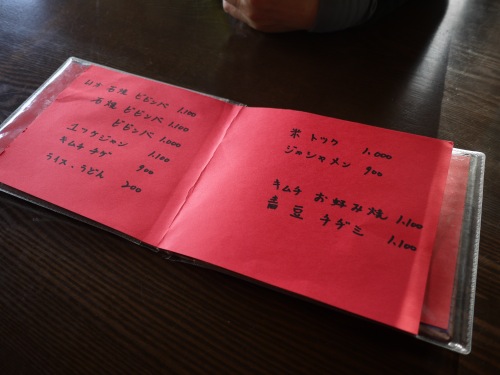 石焼 ビビンバ 1,100
石焼 ビビンバ 1,100
ビビンバ 1,000
ユッケジャン 1,100
キムチ チゲ 900
ライス・うどん 200
米 トック 1,000
ジャジャメン 900
キムチ お好み焼 1,100
豆 チヂミ 1,100